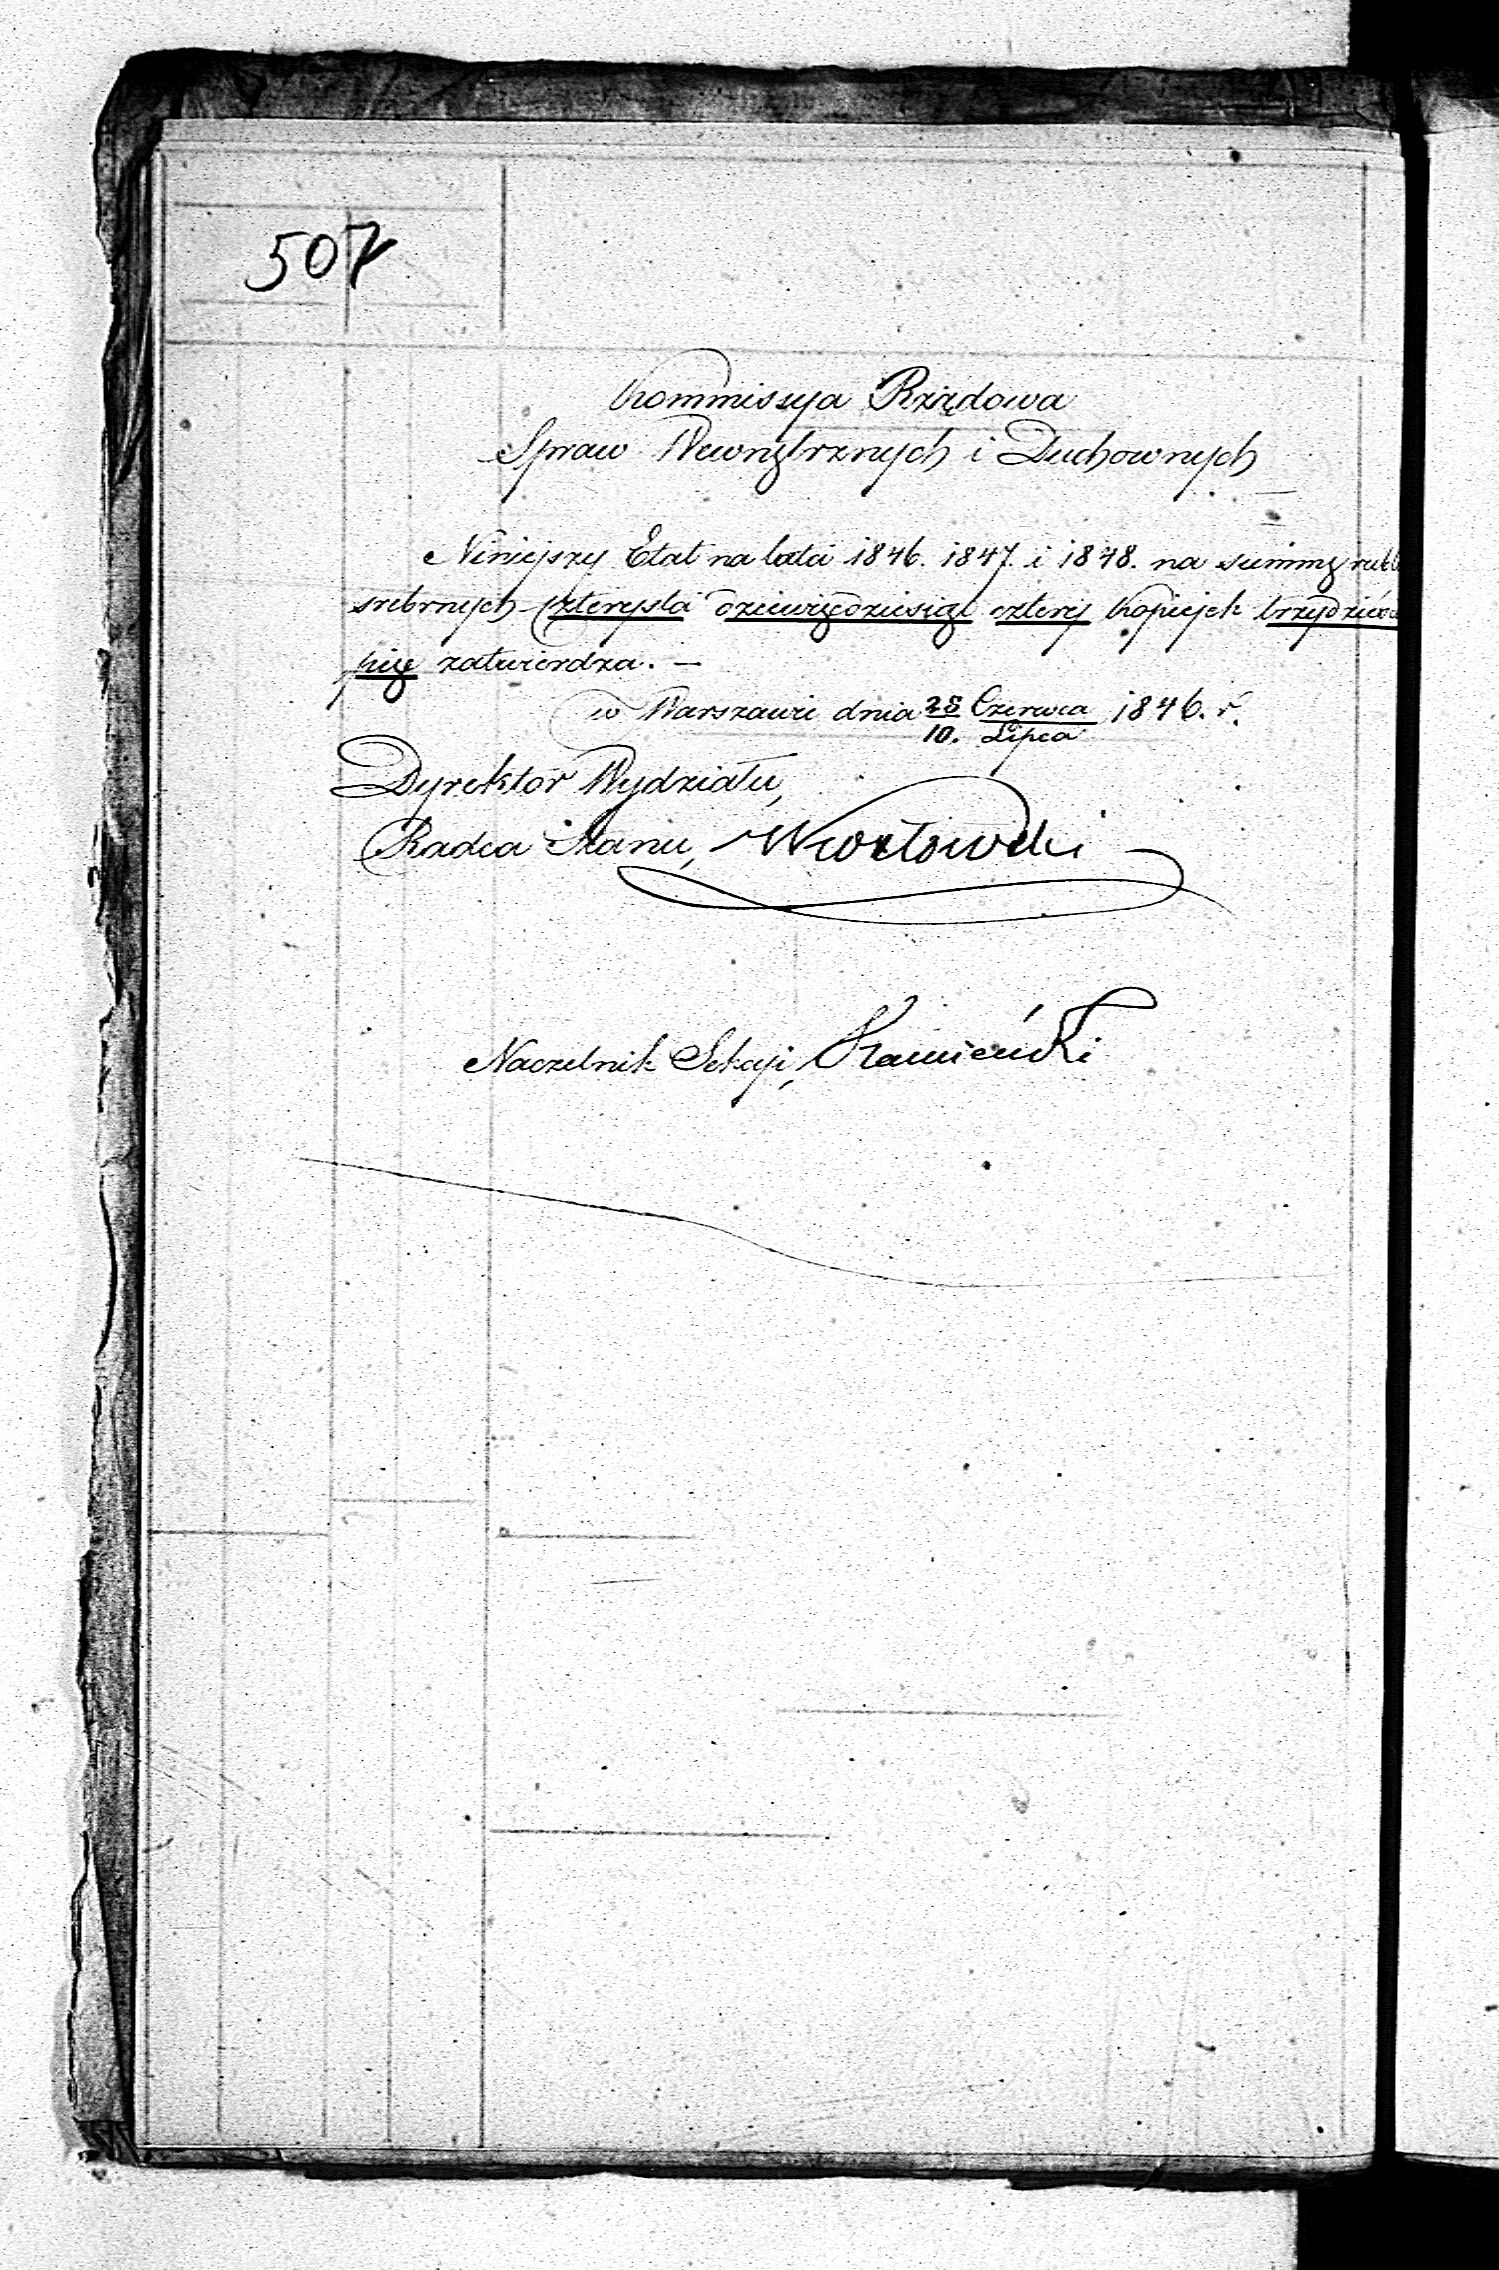 507
Kommissya Rządowa
Spraw Wewnętrznych i Duchownych
Niniejszy Etat na lata 1846. 1847. i 1848. na summę rubli
srebrnych czterysta dziewięćdziesiąt cztery kopiejek trzydzieści
pięć zatwierdza. —
w Warszawie dnia 28/10. Czerwca/Lipca 1846. r.
Dyrektor Wydziału,
Radca Stanu,
Naczelnik Sekcji, Kamieński